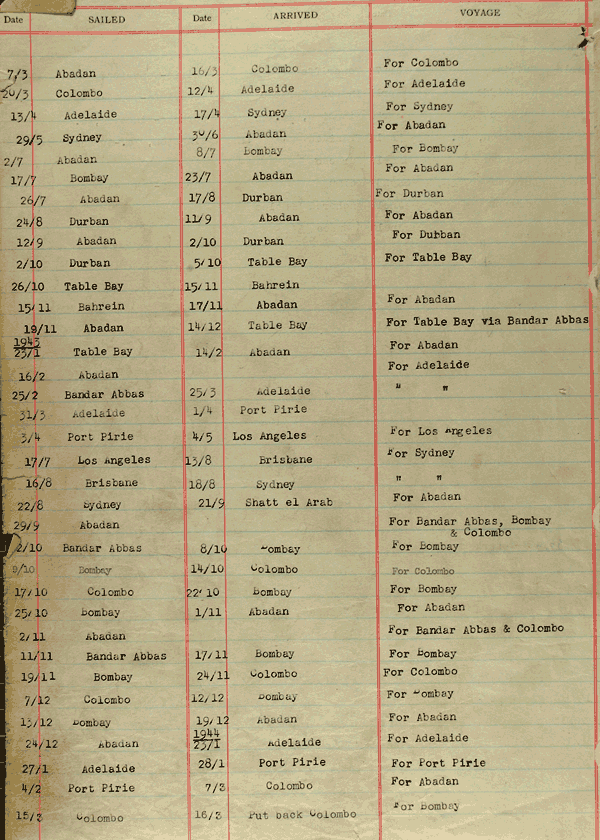 Date SAILED Date ARRIVED VOYAGE
7/3 Abadan 16/3 Colombo For Colombo
20/3 Colombo 12/4 Adelaide For Adelaide
13/4 Adelaide 17/4 Sydney For Sydney
29/5 Sydney 30/6 Abadan For Abadan
2/7 Abadan 8/7 Bombay For Bombay
17/7 Bombay 23/7 Abadan For Abadan
26/7 Abadan 17/8 Durban For Durban
24/8 Durban 11/9 Abadan For Abadan
12/9 Abadan 2/10 Durban For Durban
2/10 Durban 5/10 Table Bay For Table Bay
26/10 Table Bay 15/11 Bahrein
15/11 Bahrein 17/11 Abadan For Abadan
19/11 Abadan 14/12 Table Bay For Table Bay via Bandar Abbas
1943
23/1 Table Bay 14/2 Abadan For Abadan
16/2 Abadan For Adelaide
25/2 Bandar Abbas 25/3 Adelaide " "
31/3 Adelaide 1/4 Port Pirie
3/4 Port Pirie 4/5 Los Angeles For Los Angeles
17/7 Los Angeles 13/8 Brisbane For Sydney
16/8 Brisbane 18/8 Sydney " "
22/8 Sydney 21/9 Shatt el Arab For Abadan
29/9 Abadan For Bandar Abbas, Bombay
& Colombo
2/10 Bandar Abbas 8/10 Bombay For Bombay
9/10 Bombay 14/10 Colombo For Colombo
17/10 Colombo 22/10 Bombay For Bombay
25/10 Bombay 1/11 Abadan For Abadan
2/11 Abadan For Bandar Abbas & Colombo
11/11 Bandar Abbas 17/11 Bombay For Bombay
19/11 Bombay 24/11 Colombo For Colombo
7/12 Colombo 12/12 Bombay For Bombay
13/12 Bombay 19/12 Abadan For Abadan
1944
24/12 Abadan 23/1 Adelaide For Adelaide
27/1 Adelaide 28/1 Port Pirie For Port Pirie
4/2 Port Pirie 7/3 Colombo For Abadan
15/3 Colombo 16/3 Put back Colombo For Bombay